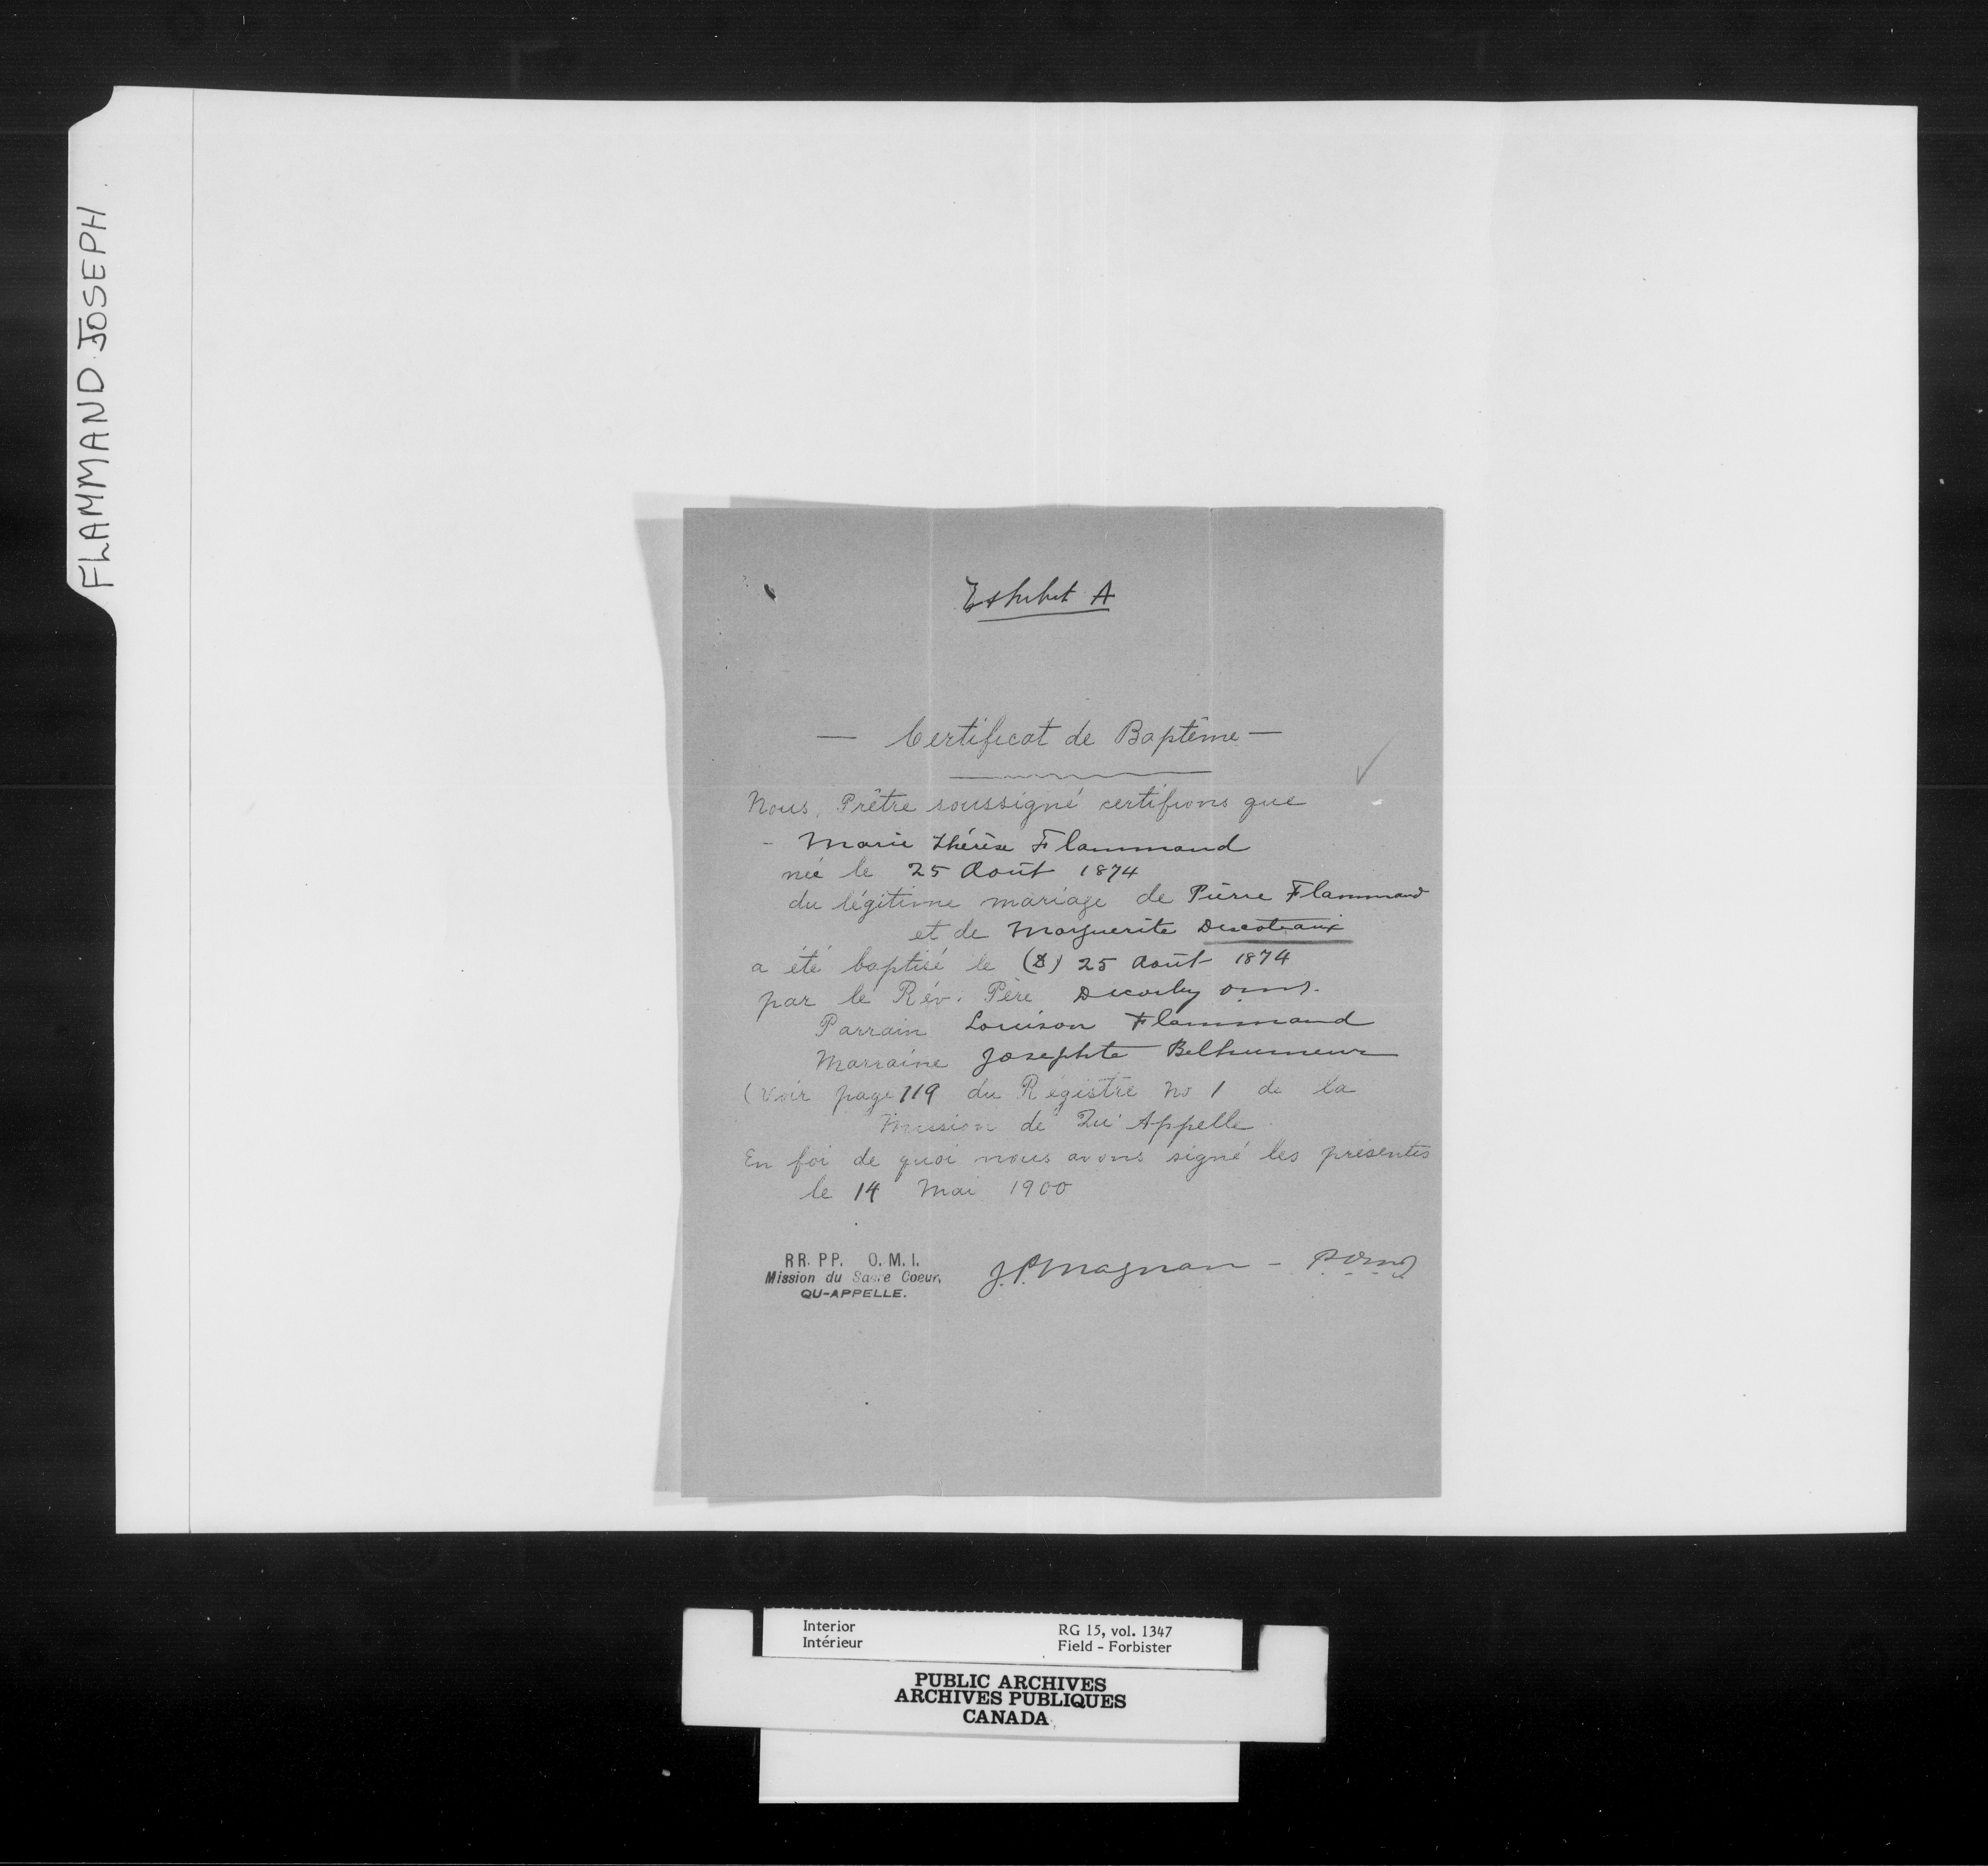 FLAMMAND JOSEPH
Exhibit A
— Certificat de Baptême —
Nous, Prêtre soussigné certifions que
- Marie Thérèse Flammand
née le 25 Août 1874
du légitime mariage de Pierre Flammand
et de Marguerite Decoteaux
a été baptisé le 25 Août 1874
par le Rév. Père Decorby o.m.i.
Parrain Louison Flammand
Marraine Josephte Belhumeur
(Voir page 119 du Régistre No 1 de la
Mission de Qu'Appelle
En foi de quoi nous avons signé les présentes
le 14 Mai 1900
RR. PP. O. M. I.
Mission du Sacre Coeur,
QU-APPELLE.
J. P. Magnan - p.o.m.i
Interior RG 15, vol. 1347
Intérieur Field - Forbister
PUBLIC ARCHIVES
ARCHIVES PUBLIQUES
CANADA